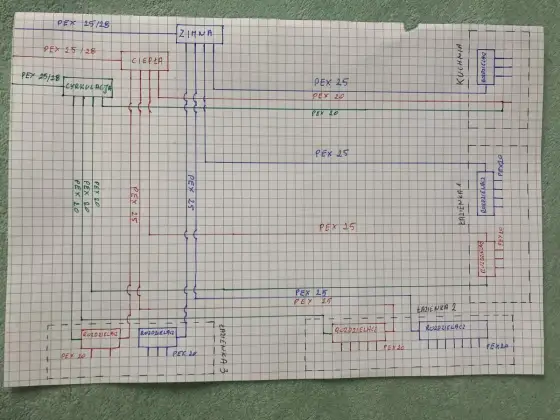 PEX 25/28
ZIMNA
PEX 25/28
CIEPŁA
PEX 25/28
CYRKULACJA
KUCHNIA
ROZDZIELACZ
PEX 25
PEX 20
PEX 20
PEX 25
ŁAZIENKA 1
ROZDZIELACZ
PEX 20
PEX 20
PEX 20
PEX 20
PEX 25
PEX 25
PEX 25
ROZDZIELACZ
PEX 20
PEX 25
PEX 25
ŁAZIENKA 2
ROZDZIELACZ
ROZDZIELACZ
ŁAZIENKA 3
ROZDZIELACZ
ROZDZIELACZ
PEX 20
PEX 20
PEX 20
PEX 20